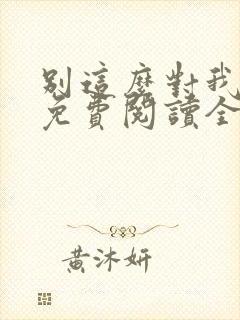 別這麼對我
免費閱讀全
黃沐妍